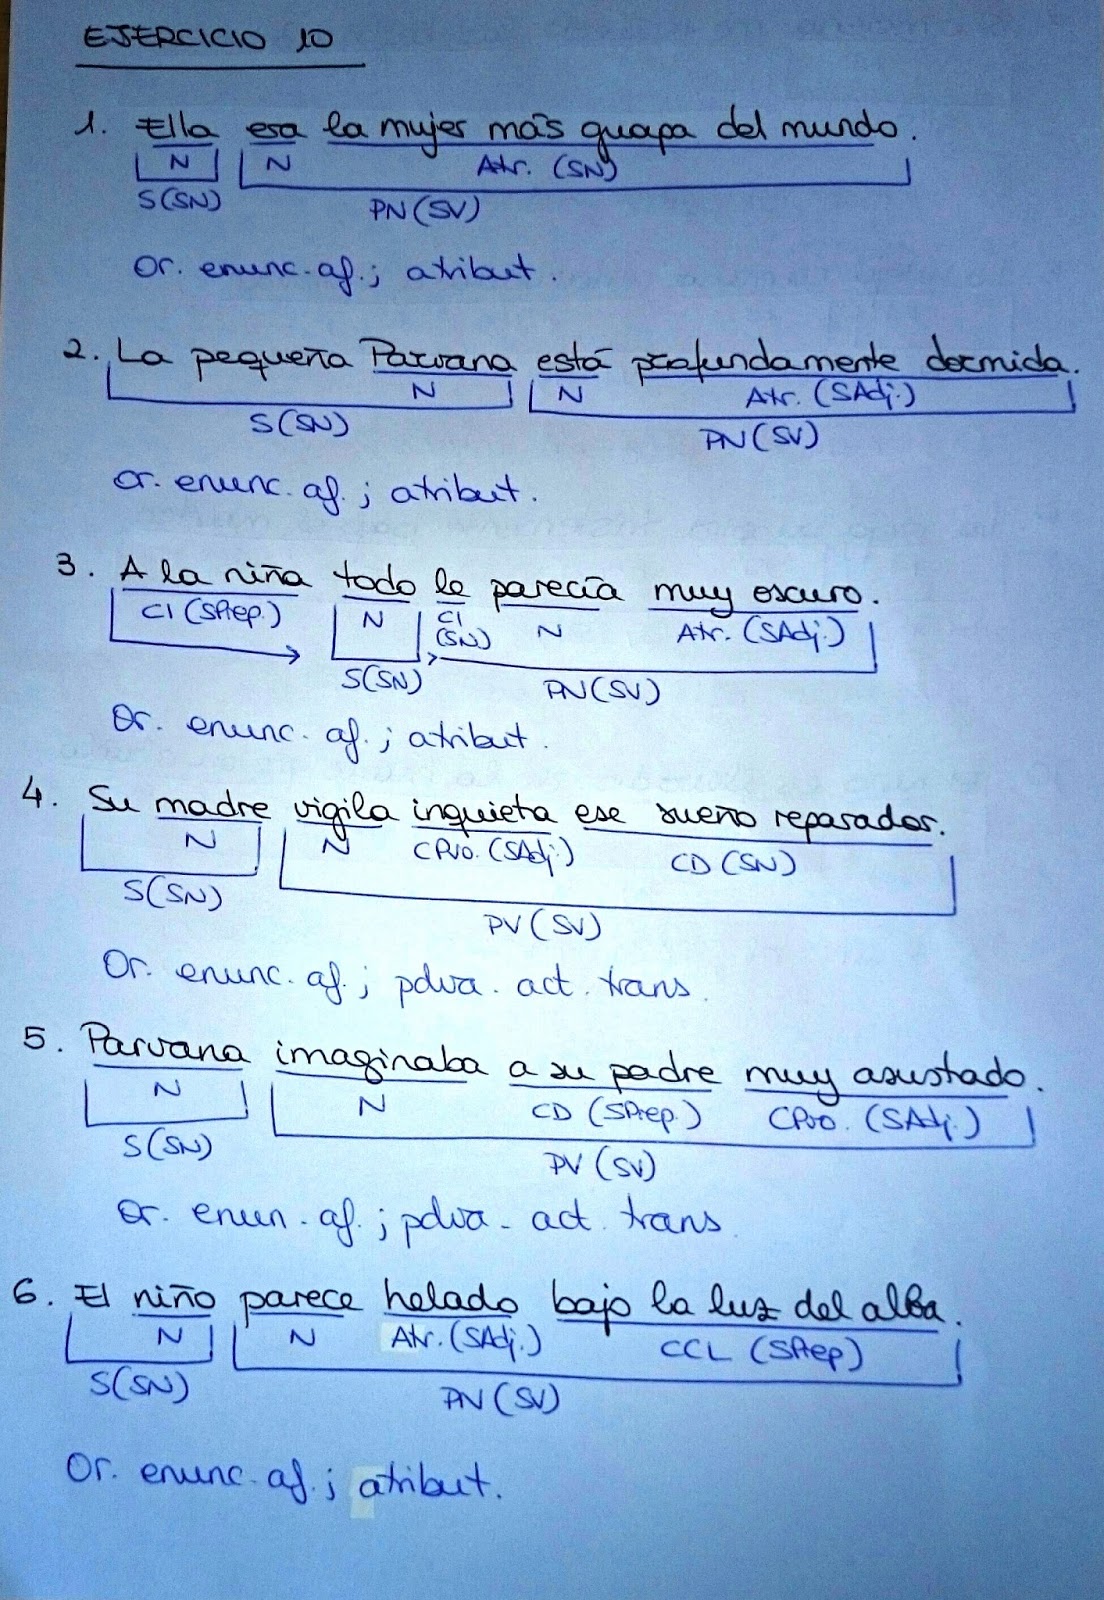 EJERCICIO 10
1. Ella era la mujer más guapa del mundo.
N N Atr. (SN)
S(SN) PN(SV)
Or. enunc. af.; atribut.
2. La pequeña Parvana está profundamente dormida.
N N Atr. (SAdj.)
S(SN) PN(SV)
Or. enunc. af.; atribut.
3. A la niña todo le parecía muy oscuro.
CI (SPrep.) N CI (SN) N Atr. (SAdj.)
S(SN) PN(SV)
Or. enunc. af.; atribut.
4. Su madre vigila inquieta ese sueño reparador.
N N CPvo. (SAdj.) CD (SN)
S(SN) PV (SV)
Or. enunc. af.; pdva. act. trans.
5. Parvana imaginaba a su padre muy asustado.
N N CD (SPrep.) CPvo. (SAdj.)
S(SN) PV (SV)
Or. enun. af.; pdva. act. trans
6. El niño parece helado bajo la luz del alba.
N N Atr. (SAdj.) CCL (SPrep)
S(SN) PN (SV)
Or. enunc. af.; atribut.